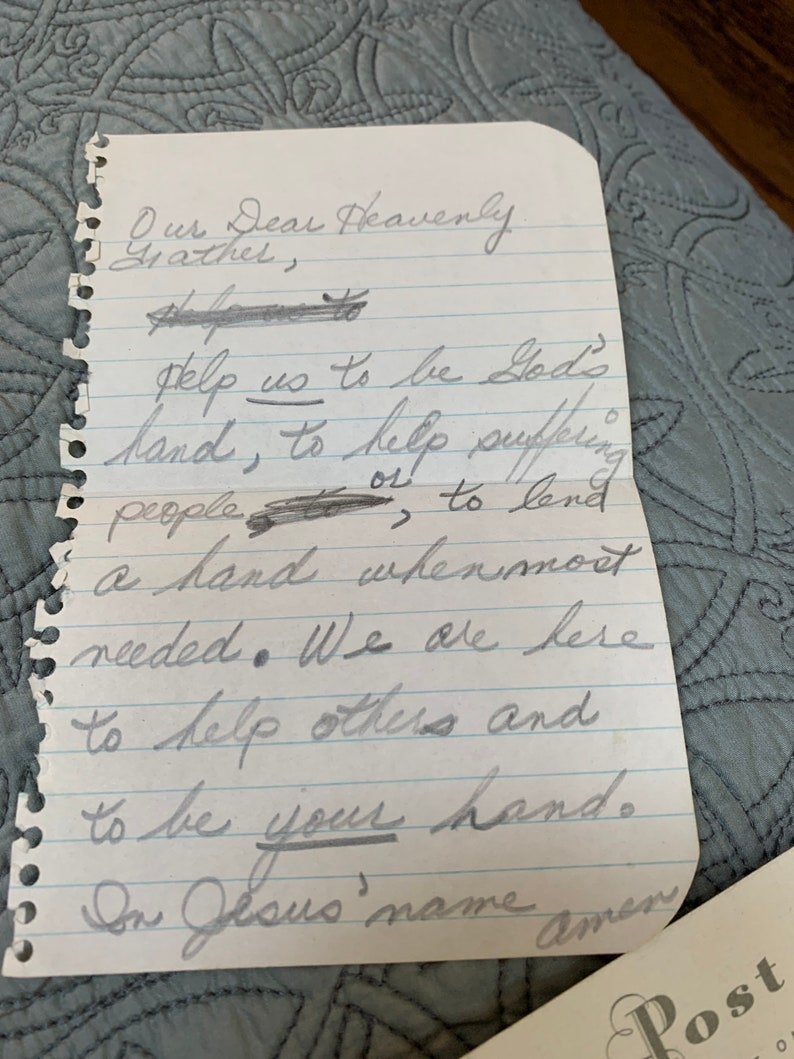 Our Dear Heavenly
Father,
Help us to
Help us to be God's
hand, to help suffering
people, to or, to lend
a hand when most
needed. We are here
to help others and
to be your hand.
In Jesus' name amen
Post